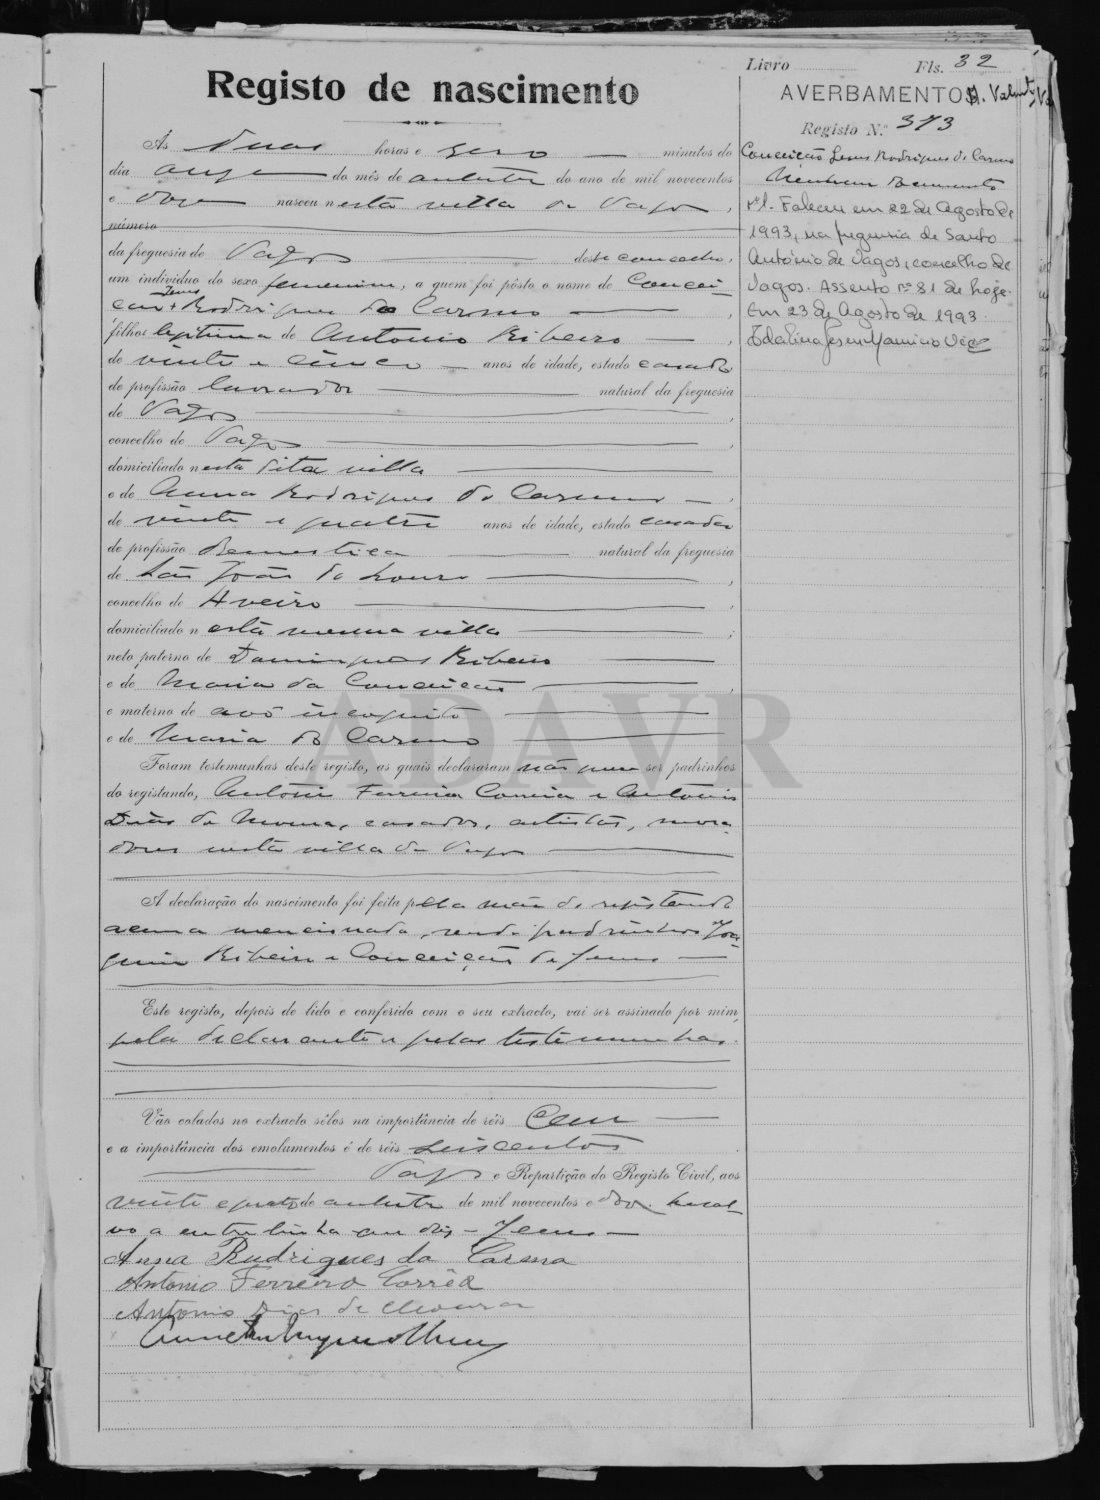 Livro Fls. 32
Registo de nascimento
AVERBAMENTOS
Registo N.º 373
Às duas horas e zero minutos do
dia onze do mês de outubro do ano de mil novecentos
e doze nasceu nesta villa de Vagos,
número
da freguesia de Vagos deste concelho,
um indivíduo do sexo femenino, a quem foi pôsto o nome de Concei-
ção Jesus Rodrigues do Carmo
filha legitima de Antonio Ribeiro
de vinte e cinco anos de idade, estado casado
de profissão lavrador natural da freguesia
de Vagos,
concelho de Vagos,
domiciliado nesta dita villa
e de Anna Rodrigues do Carmo,
de vinte e quatro anos de idade, estado casada
de profissão Domestica natural da freguesia
de São João de Loure,
concelho de Aveiro,
domiciliado n esta mesma villa;
neto paterno de Domingues Ribeiro
e de Maria da Conceição,
e materno de avô incognito
e de Maria do Carmo
Foram testemunhas deste registo, as quais declararam não ser padrinhos
do registando, António Ferreira Correia e Antonio
Dias de Moura, casados, artistas, mora-
dores nesta villa de Vagos
A declaração do nascimento foi feita pela mãe do registando
acima mencionada, sendo padrinhos Joa-
quim Ribeiro e Conceição de Jesus
Este registo, depois de lido e conferido com o seu extracto, vai ser assinado por mim,
pela declarante e pelas testemunhas.
Vão colados no extracto sêlos na importância de réis Cem
e a importância dos emolumentos é de réis seiscentos
Vagos e Repartição do Registo Civil, aos
vinte e quatro de outubro de mil novecentos e doze. Resal-
vo a entrelinha que diz - Jesus -
Anna Rudrigues do Carmo
Antonio Ferreira Corrêa
Antonio Dias de Moura
Conceição Jesus Rodrigues do Carmo
Nº1. Faleceu em 22 de Agosto de
1993, na freguesia de Santo
António de Vagos, concelho de
Vagos. Assento nº 81 de hoje.
Em 23 de Agosto de 1993.
ADAVR